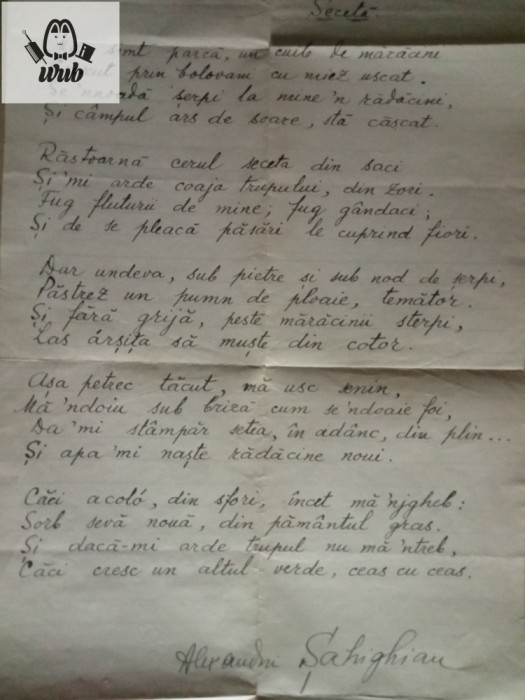 Secetă.
wub
simt parcă, un cuib de mărăcini
prin bolovani cu miez uscat.
șerpi la mine 'n rădăcini,
Și câmpul ars de soare, stă căscat.
Răstoarnă cerul seceta din saci
Și 'mi arde coaja trupului, din zori.
Fug fluturii de mine; fug gândaci;
Și de se pleacă păsări le cuprind fiori.
Dar undeva, sub pietre și sub nod de șerpi,
Păstrez un pumn de ploaie, temător.
Și fără grijă, peste mărăcinii sterpi,
Las arșița să muște din cotor.
Așa petrec tăcut, mă usc senin,
Mă 'ndoiu sub briză cum se 'ndoaie foi,
Da 'mi stâmpăr setea, în adânc, din plin...
Și apa 'mi naște rădăcine noui.
Căci acoló, din sfori, încet mă 'njgheb:
Sorb sevă nouă, din pământul gras.
Și dacă-mi arde trupul nu mă 'ntreb,
Căci cresc un altul verde, ceas cu ceas.
Alexandru Șahighian